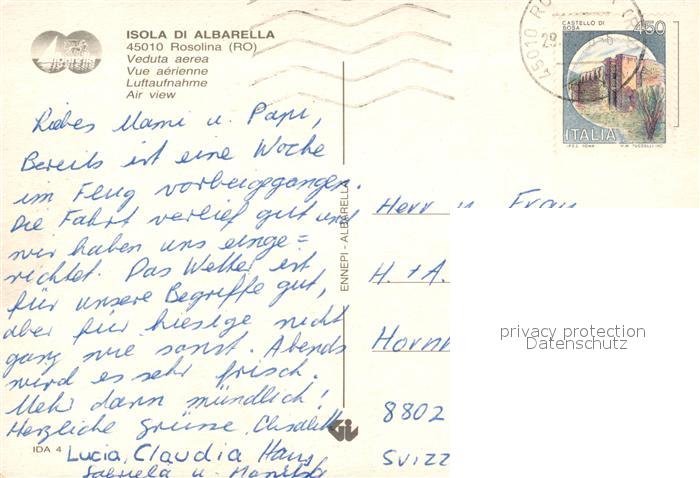 ISOLA DI ALBARELLA
45010 Rosolina (RO)
Veduta aerea
Vue aérienne
Luftaufnahme
Air view
CASTELLO DI BOSA
450
ITALIA
45010
Liebes Mami u. Papi,
Bereits ist eine Woche
im Flug vorbeigegangen.
Die Fahrt verlief gut und
wir haben uns einge=
richtet. Das Wetter ist
für unsere Begriffe gut,
aber für hiesige nicht
ganz wie sonst. Abends
wird es sehr frisch.
Mehr dann mündlich!
Herzliche Grüsse
Lucia, Claudia Hans
Gabriela u.
IDA 4
ENNEPI - ALBARELLA
Herr u. Frau
H. + A.
8802
privacy protection
Datenschutz